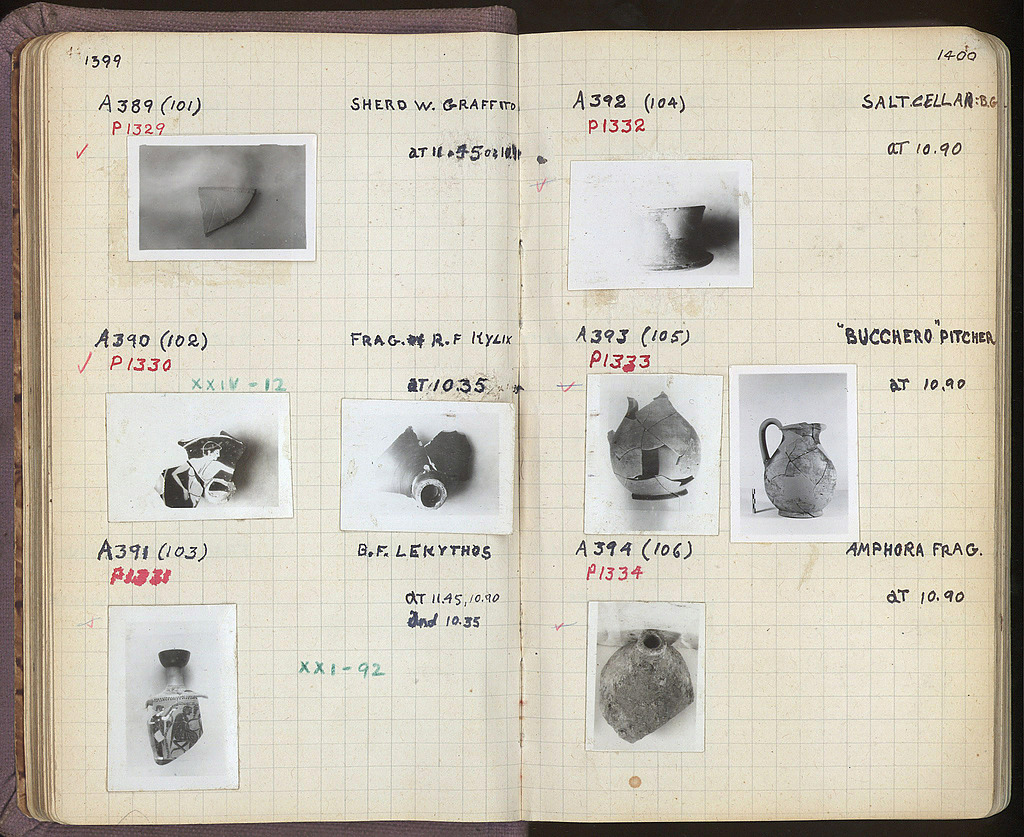 1399
A389 (101) SHERD W. GRAFFITO
P1329
AT
A390 (102) FRAG. R.F KYLIX
P1330
XXIV - 12 AT 10.35
A391 (103) B.F. LEKYTHOS
P1331
AT 11.45, 10.90
And 10.35
XXI - 92
1400
A392 (104) SALT.CELLAR: B.G.
P1332
AT 10.90
A393 (105) "BUCCHERO" PITCHER
P1333
AT 10.90
A394 (106) AMPHORA FRAG.
P1334
AT 10.90